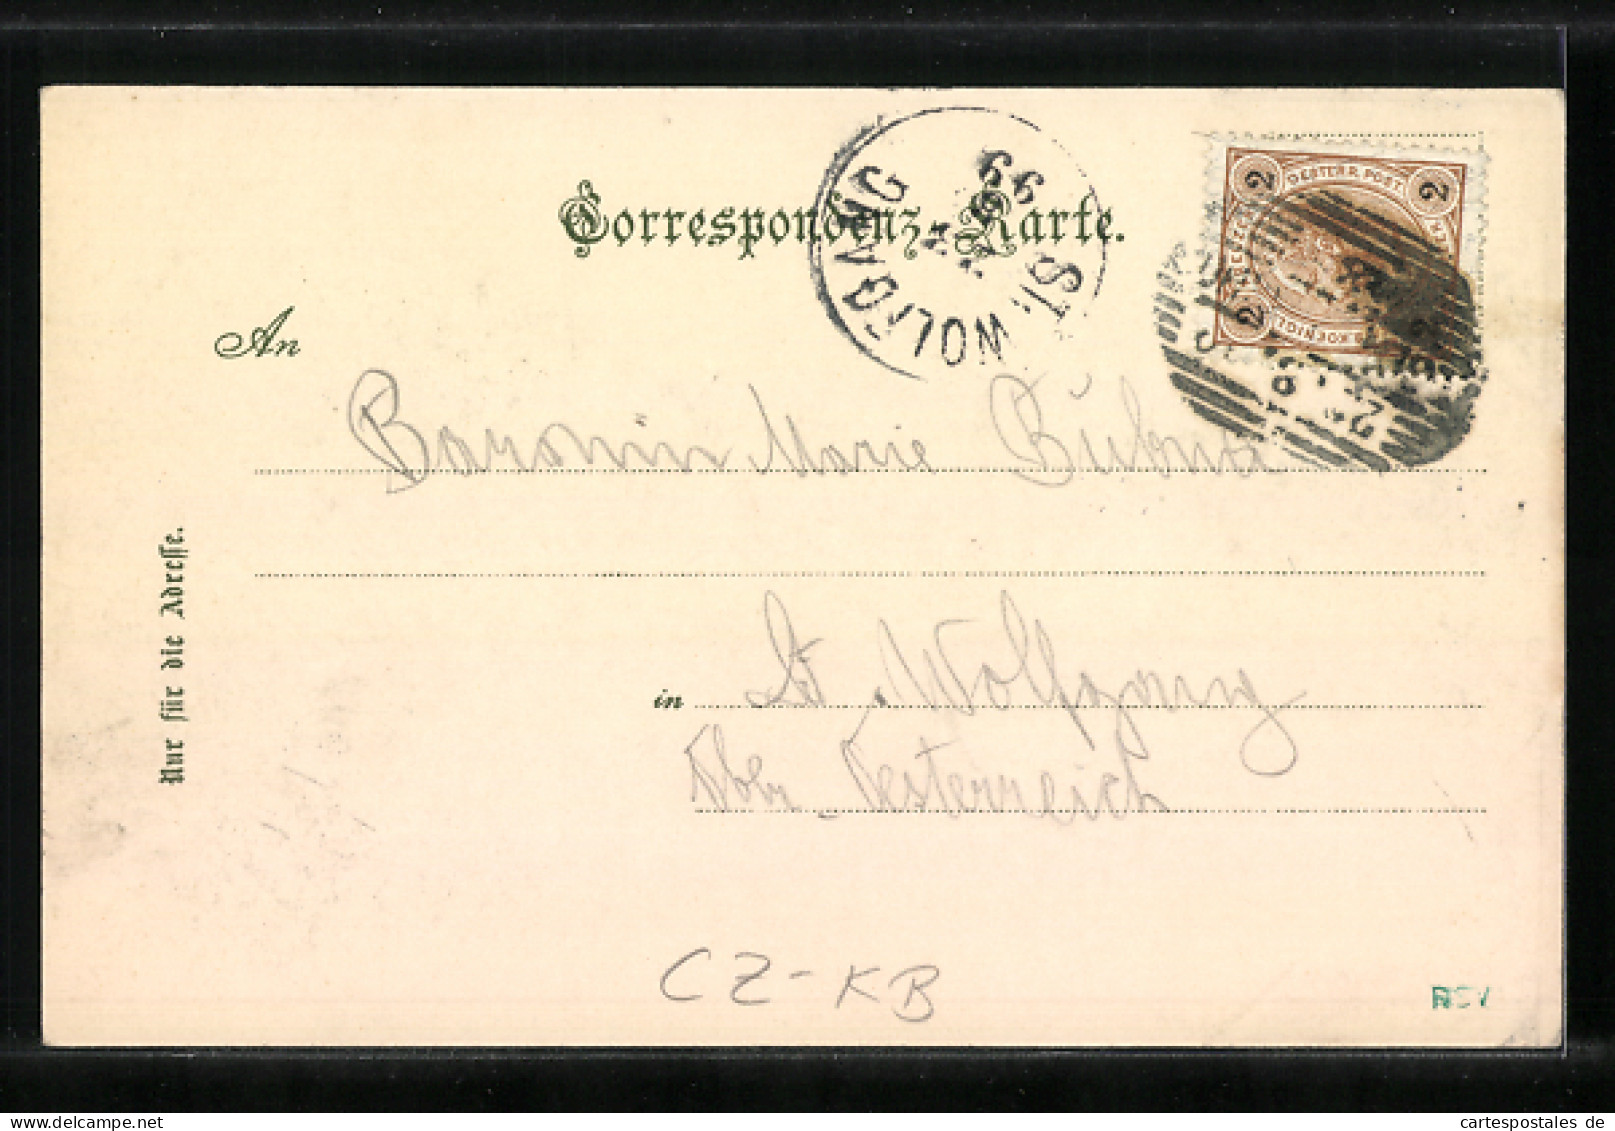 Correspondenz-Karte.
ST. WOLFGANG
99
OESTERR. POST.
2 2
2
An
Baronin Marie Bubna
in St. Wolfgang
Ober Oesterreich
Nur für die Adresse.
CZ-KB
cartespostales de